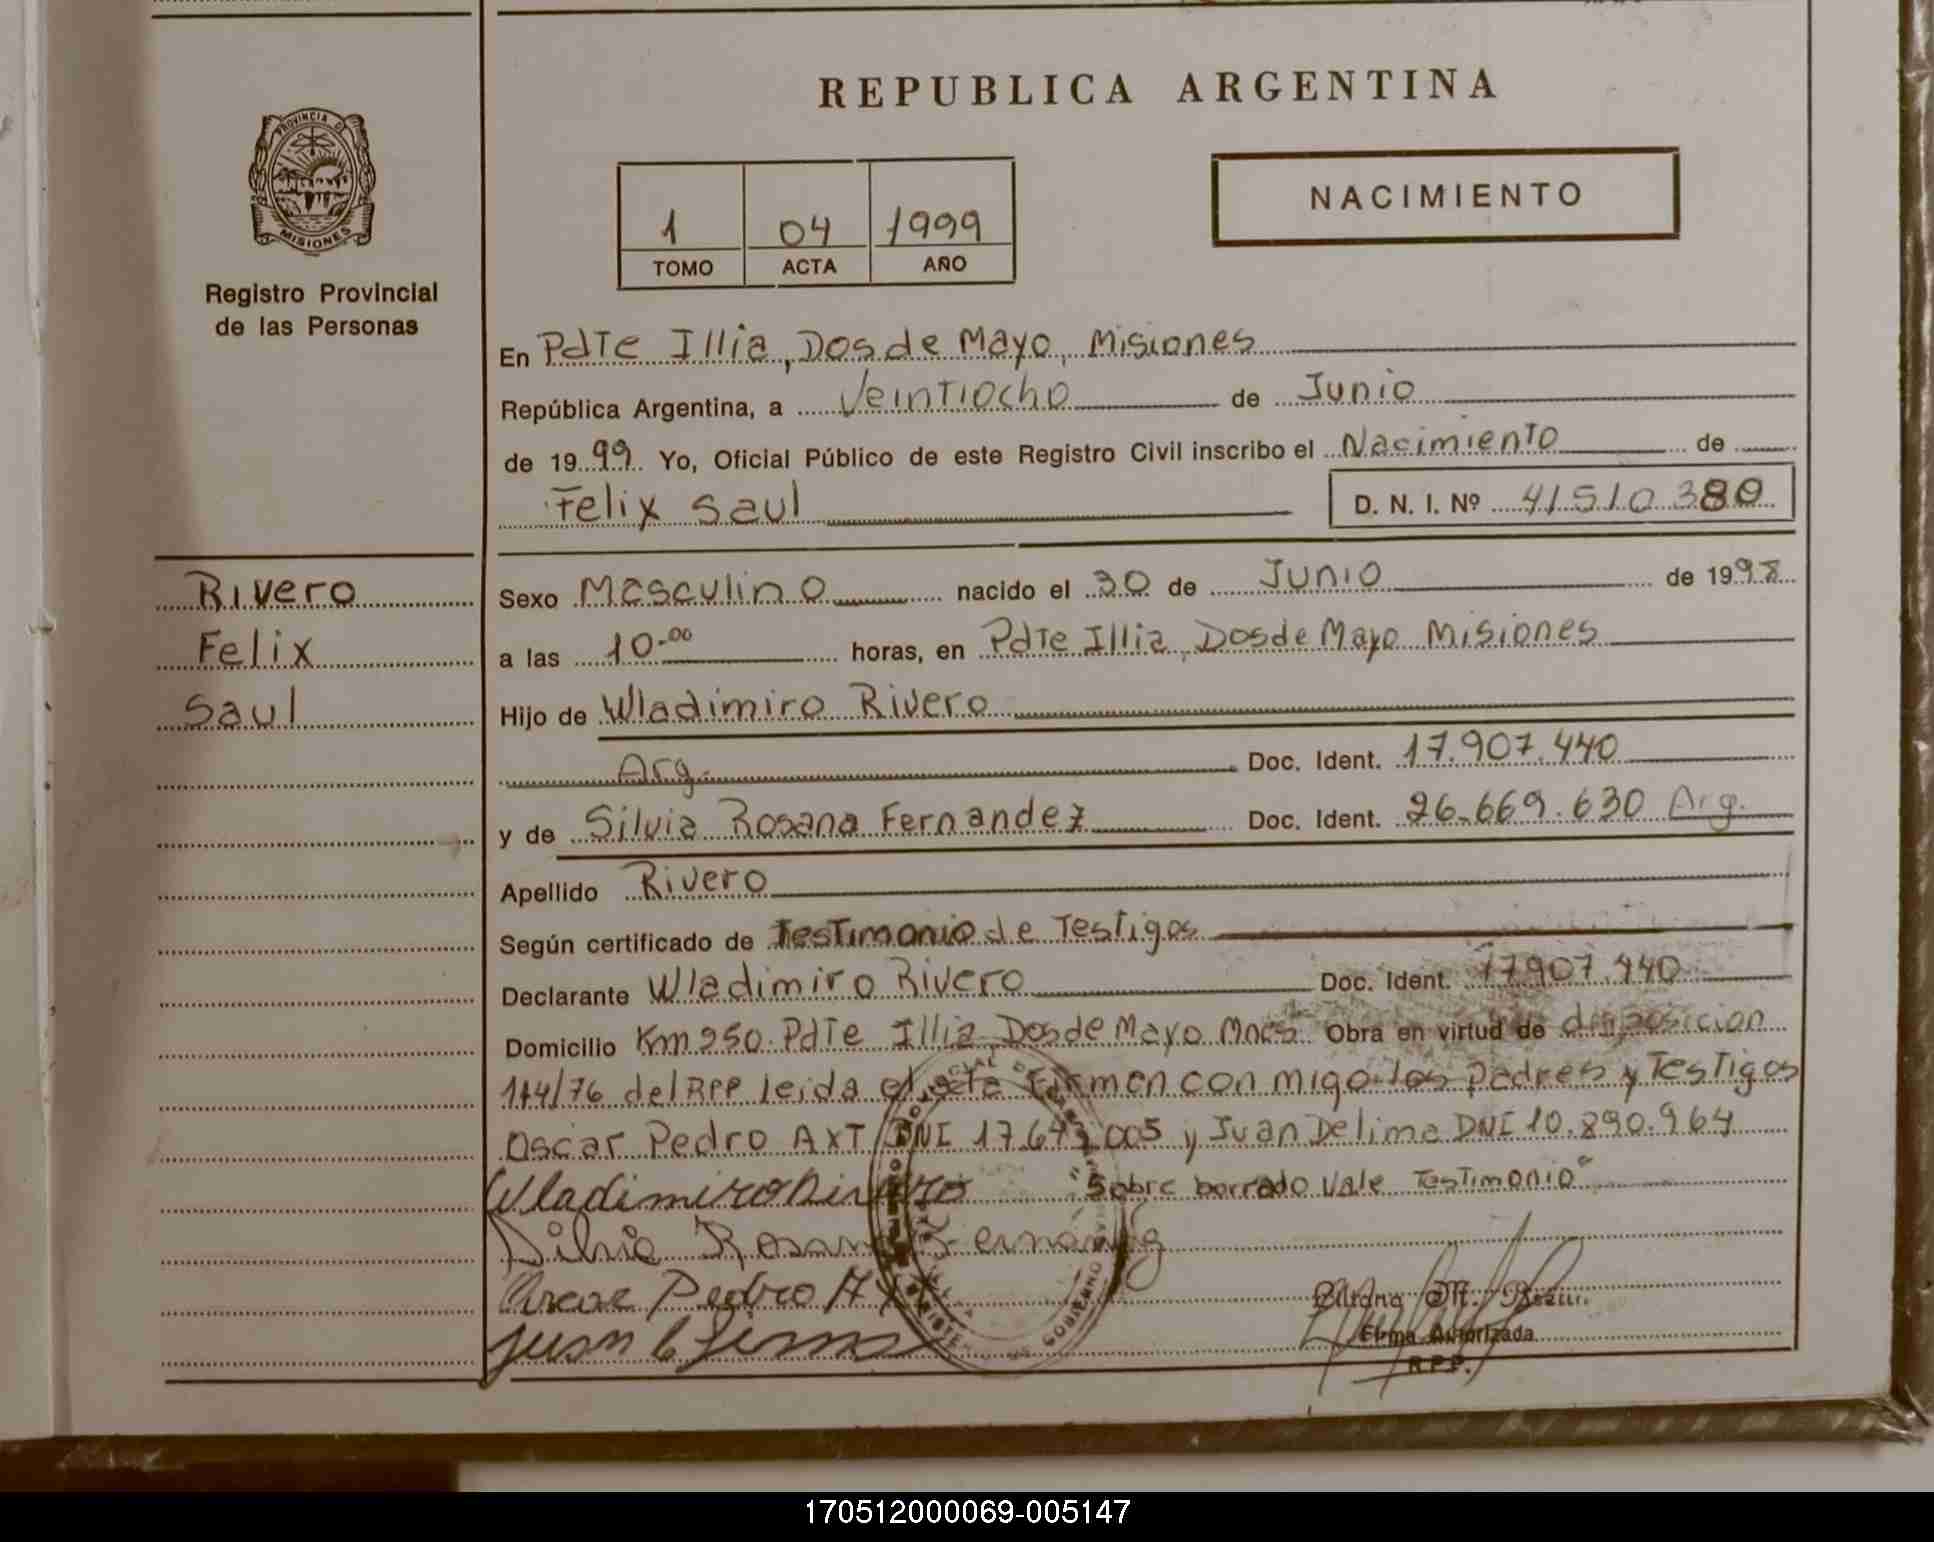 REPUBLICA ARGENTINA
PROVINCIA DE
MISIONES
Registro Provincial
de las Personas
NACIMIENTO
1 04 1999
TOMO ACTA AÑO
En Pdte Illia, Dos de Mayo, Misiones
República Argentina, a Veintiocho de Junio
de 1999 Yo, Oficial Público de este Registro Civil inscribo el Nacimiento de
Felix Saul D. N. I. Nº 41510380
Rivero
Felix
Saul
Sexo Masculino nacido el 30 de Junio de 1998
a las 10.00 horas, en Pdte Illia, Dos de Mayo Misiones
Hijo de Wladimiro Rivero
Arg. Doc. Ident. 17.907.440
y de Silvia Rosana Fernandez Doc. Ident. 26.669.630 Arg.
Apellido Rivero
Según certificado de Testimonio de Testigos
Declarante Wladimiro Rivero Doc. Ident. 17907.440
Domicilio Km 250. Pdte Illia, Dos de Mayo Mnes Obra en virtud de disposicion
114/76 del RPP leida el acta firmen con migo los padres y Testigos
Oscar Pedro AXT DNI 17.643.005 y Juan Delima DNI 10.890.964
Wladimiro Rivero "Sobre borrado vale Testimonio"
Silvia Rosana Fernandez
Oscar Pedro Ax
Firma Autorizada
R.P.P.
170512000069-005147